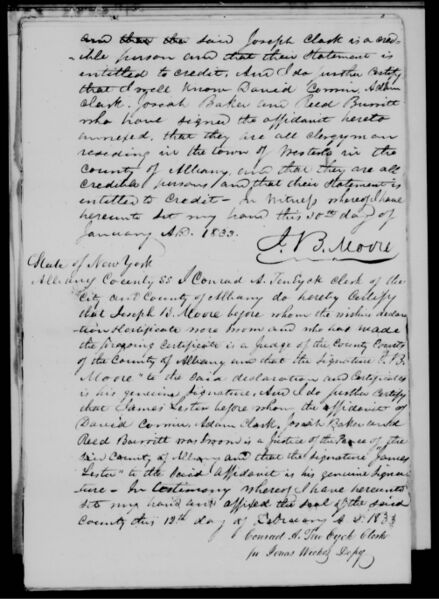 and that the said Joseph Clark is a cred-
-ible person and that their Statement is
entitled to credit, And I do further Certify
that I well know David Cornin, Adam
Clark, Josiah Baker and Reed Burritt
who have signed the affidavit hereto
annexed, that they are all Clergyman
residing in the town of Westerlo in the
County of Albany, and that they are all
Credible persons and that their Statement is
entitled to Credit - In Witness whereof I have
hereunto set my hand this 30th day of
January A.D. 1833.
J. B. Moore
State of New York
Albany County SS I Conrad A. Ten Eyck Clerk of the
City and County of Albany do hereby Certify
that Joseph B. Moore before whom the within declara-
tion & Certificate were sworn and who has made
the foregoing Certificate is a Judge of the County Courts
of the County of Albany and that the Signature "J. B.
Moore" to the said declaration and Certificates
is his genuine Signature, And I do further Certify
that James Lester before whom the affidavit of
David Cornin, Adam Clark, Josiah Baker and
Reed Burritt was sworn is a Justice of the Peace of the
said County of Albany and that the signature "James
Lester" to the said Affidavit is his genuine Signa-
ture - In testimony whereof I have hereunto
set my hand and affixed the seal of the said
County this 12th day of February A. D. 1833
Conrad A. Ten Eyck Clerk
Depy